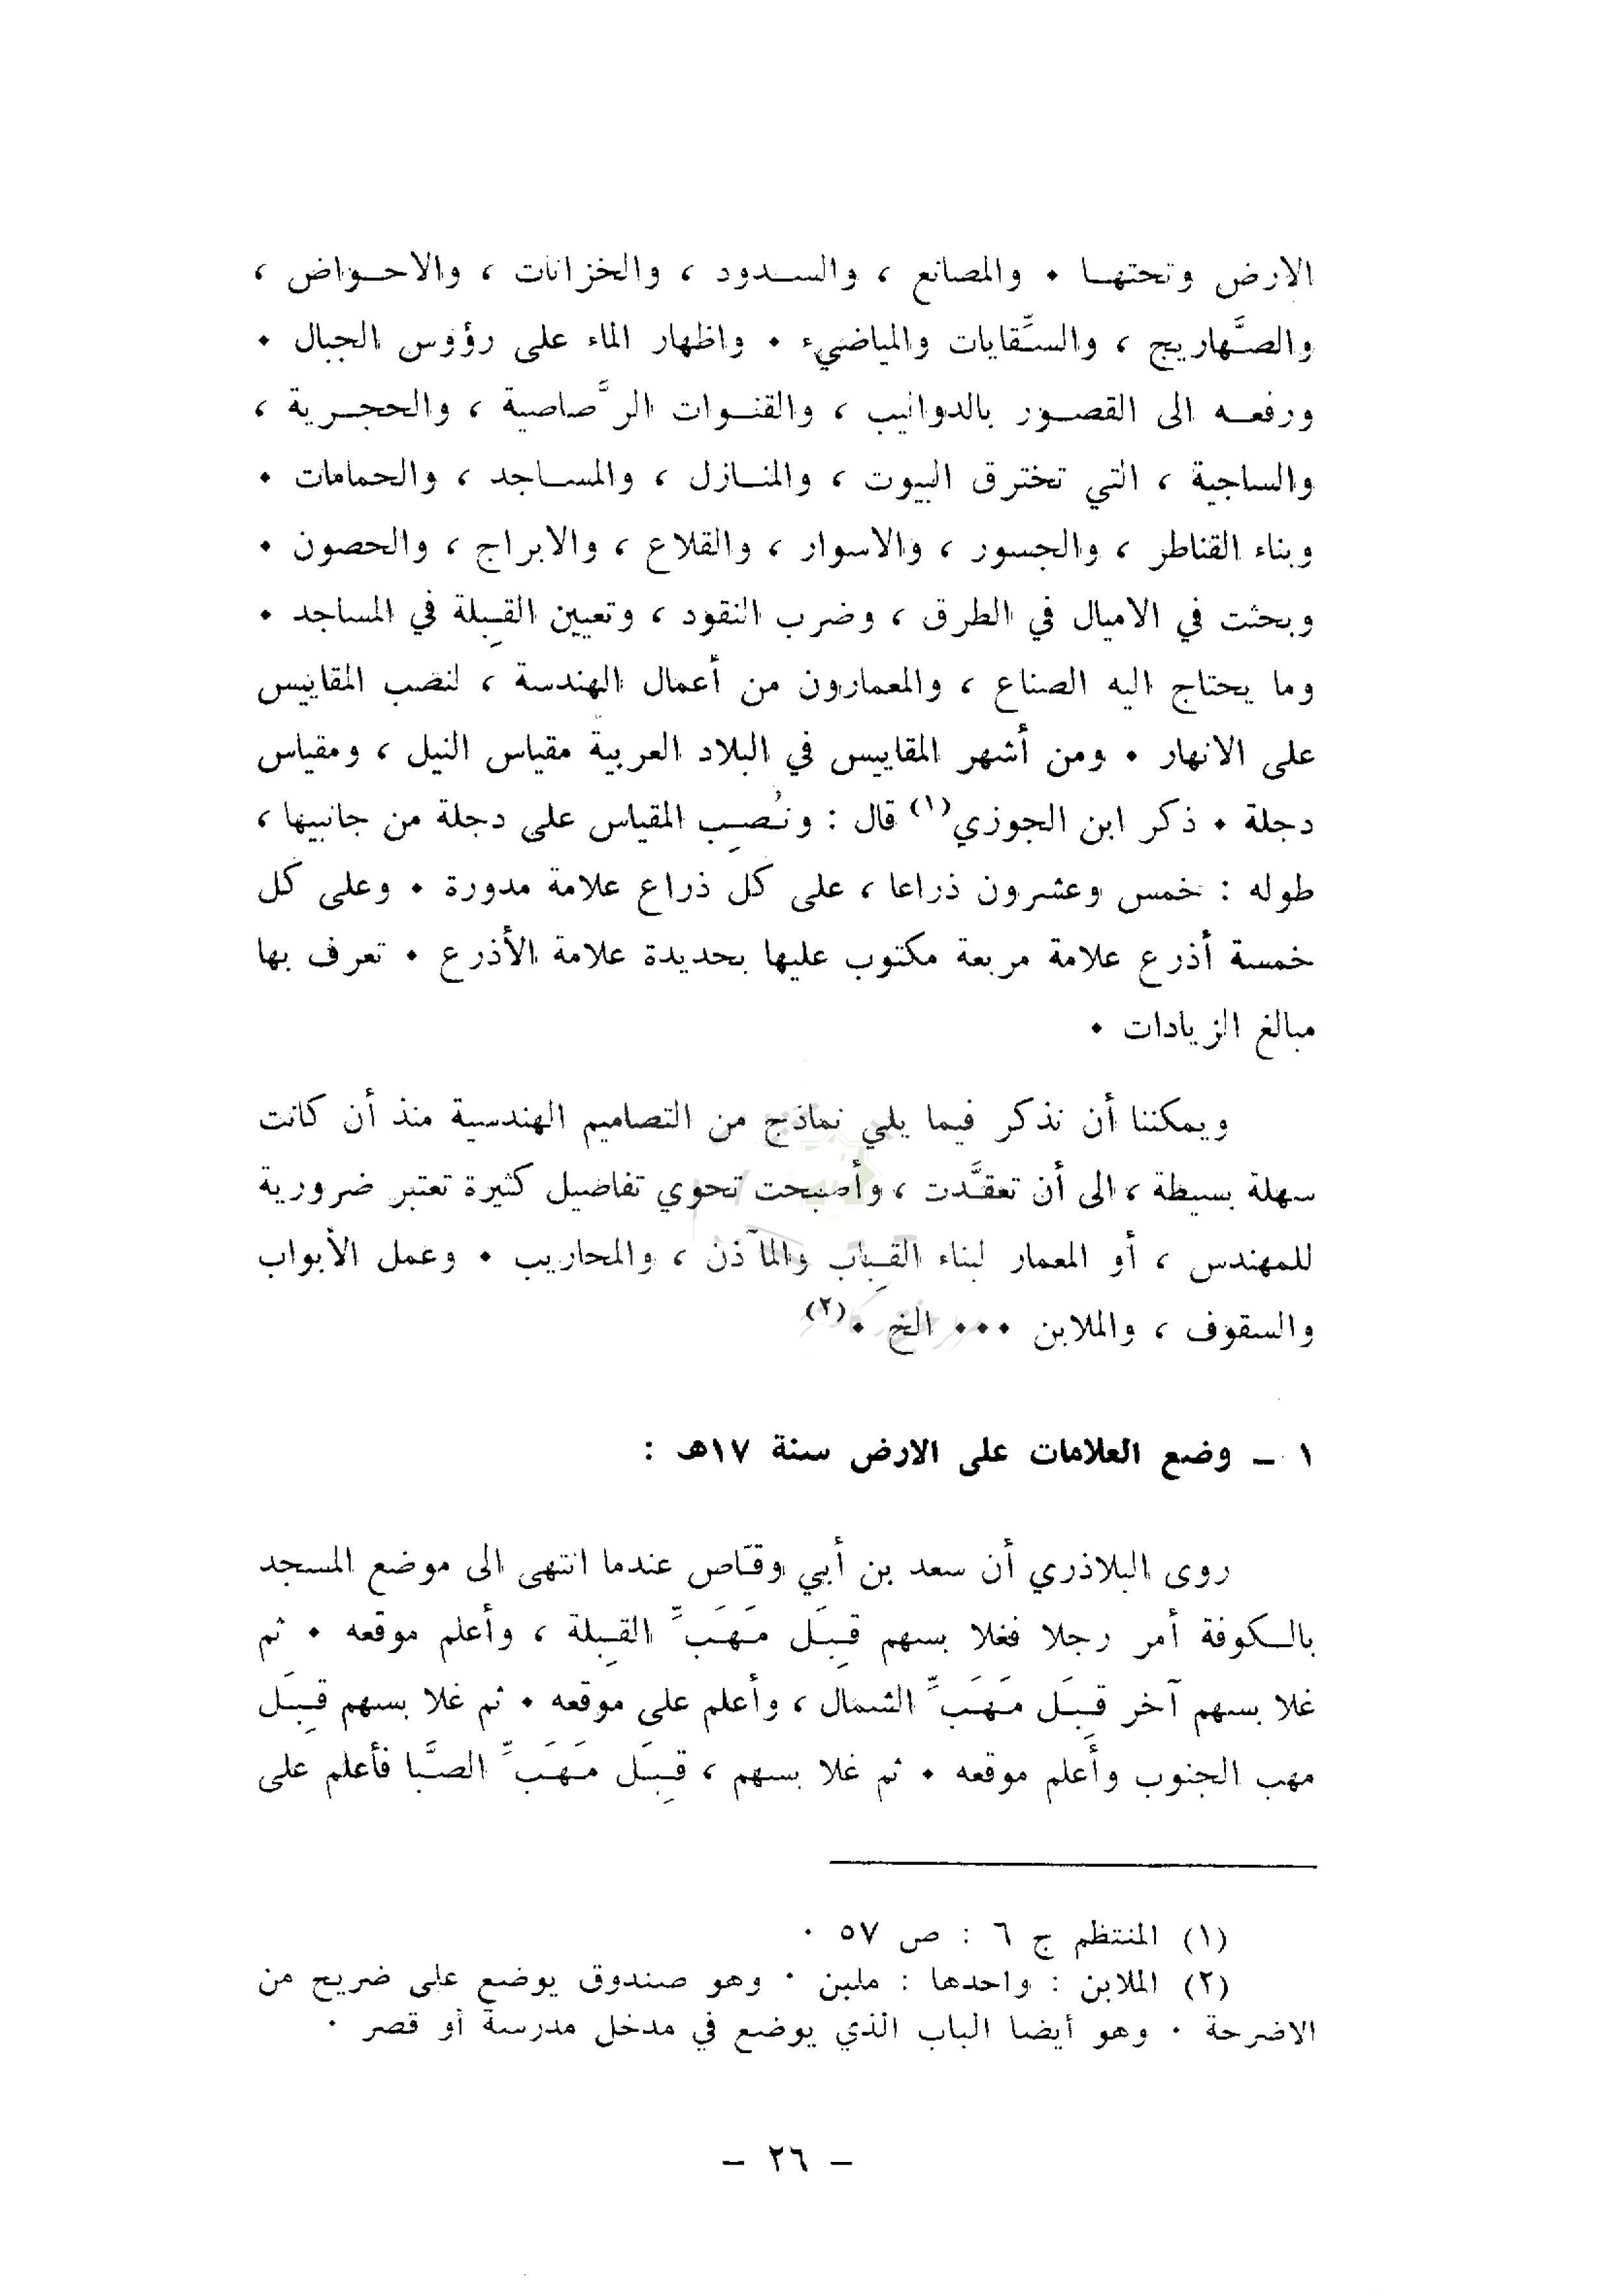 الارض وتحتهـا • والمصانع ، والســدود ، والخزانات ، والاحــواض ،
والصَّهاريج ، والسِّقايات والمياضيء • واظهار الماء على رؤوس الجبال •
ورفعــه الى القصــور بالدواليب ، والقنــوات الرَّصاصية ، والحجــرية ،
والساجية ، التي تخترق البيوت ، والمنــازل ، والمســاجد ، والحمامات •
وبناء القناطر ، والجسور ، والاسوار ، والقلاع ، والابراج ، والحصون •
وبحثت في الاميال في الطرق ، وضرب النقود ، وتعيين القِبلة في المساجد •
وما يحتاج اليه الصناع ، والمعمارون من أعمال الهندسة ، لنصب المقاييس
على الانهار • ومن أشهر المقاييس في البلاد العربية مقياس النيل ، ومقياس
دجلة • ذكر ابن الجوزي(١) قال : ونُصِب المقياس على دجلة من جانبيها ،
طوله : خمس وعشرون ذراعا ، على كل ذراع علامة مدورة • وعلى كل
خمسة أذرع علامة مربعة مكتوب عليها بحديدة علامة الأذرع • تعرف بها
مبالغ الزيادات •
ويمكننا أن نذكر فيما يلي نماذج من التصاميم الهندسية منذ أن كانت
سهلة بسيطة ، الى أن تعقَّدت ، وأصبحت تحوي تفاصيل كثيرة تعتبر ضرورية
للمهندس ، أو المعمار لبناء القِباب والمآذن ، والمحاريب • وعمل الأبواب
والسقوف ، والملابن ••• الخ •(٢)
١ - وضع العلامات على الارض سنة ١٧هـ :
روى البلاذري أن سعد بن أبي وقّاص عندما انتهى الى موضع المسجد
بالــكوفة أمر رجلا فغلا بسهم قِبَل مَهَبِّ القِبلة ، وأعلم موقعه • ثم
غلا بسهم آخر قِبَل مَهَبِّ الشمال ، وأعلم على موقعه • ثم غلا بسهم قِبَل
مهب الجنوب وأَعلم موقعه • ثم غلا بسهم ، قِبَل مَهَبِّ الصَّبا فأعلم على
(١) المنتظم ج ٦ : ص ٥٧ •
(٢) الملابن : واحدها : ملبن • وهو صندوق يوضع على ضريح من
الاضرحة • وهو أيضا الباب الذي يوضع في مدخل مدرسة أو قصر •
- ٢٦ -